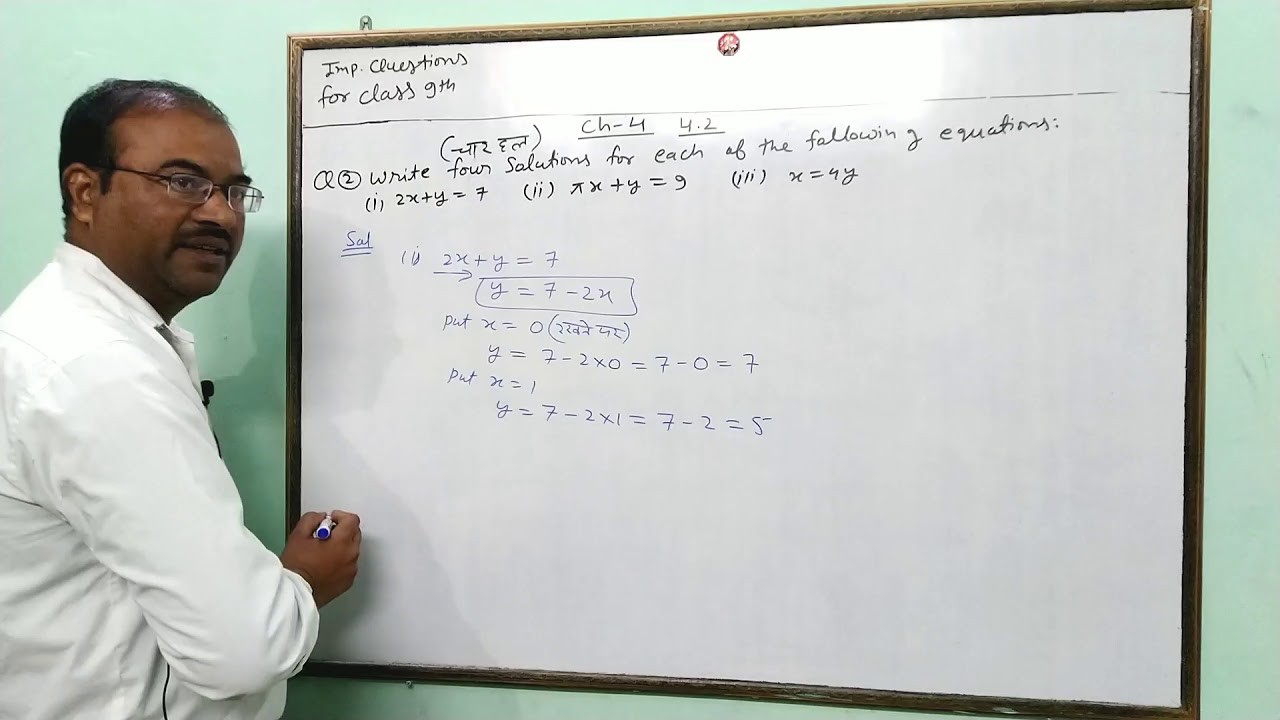 Imp. Questions
for class 9th
Ch-4 4.2
(चार हल)
Q② Write four Solutions for each of the following equations:
(i) 2x+y = 7 (ii) πx+y = 9 (iii) x = 4y
Sol
(i) 2x+y = 7
y = 7-2x
Put x = 0 (रखने पर)
y = 7-2×0 = 7-0 = 7
Put x = 1
y = 7-2×1 = 7-2 = 5